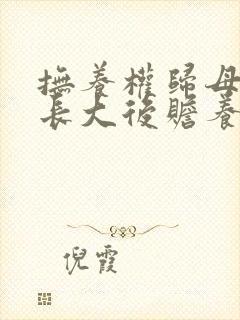 撫養權歸母
長大後贍養
倪霞